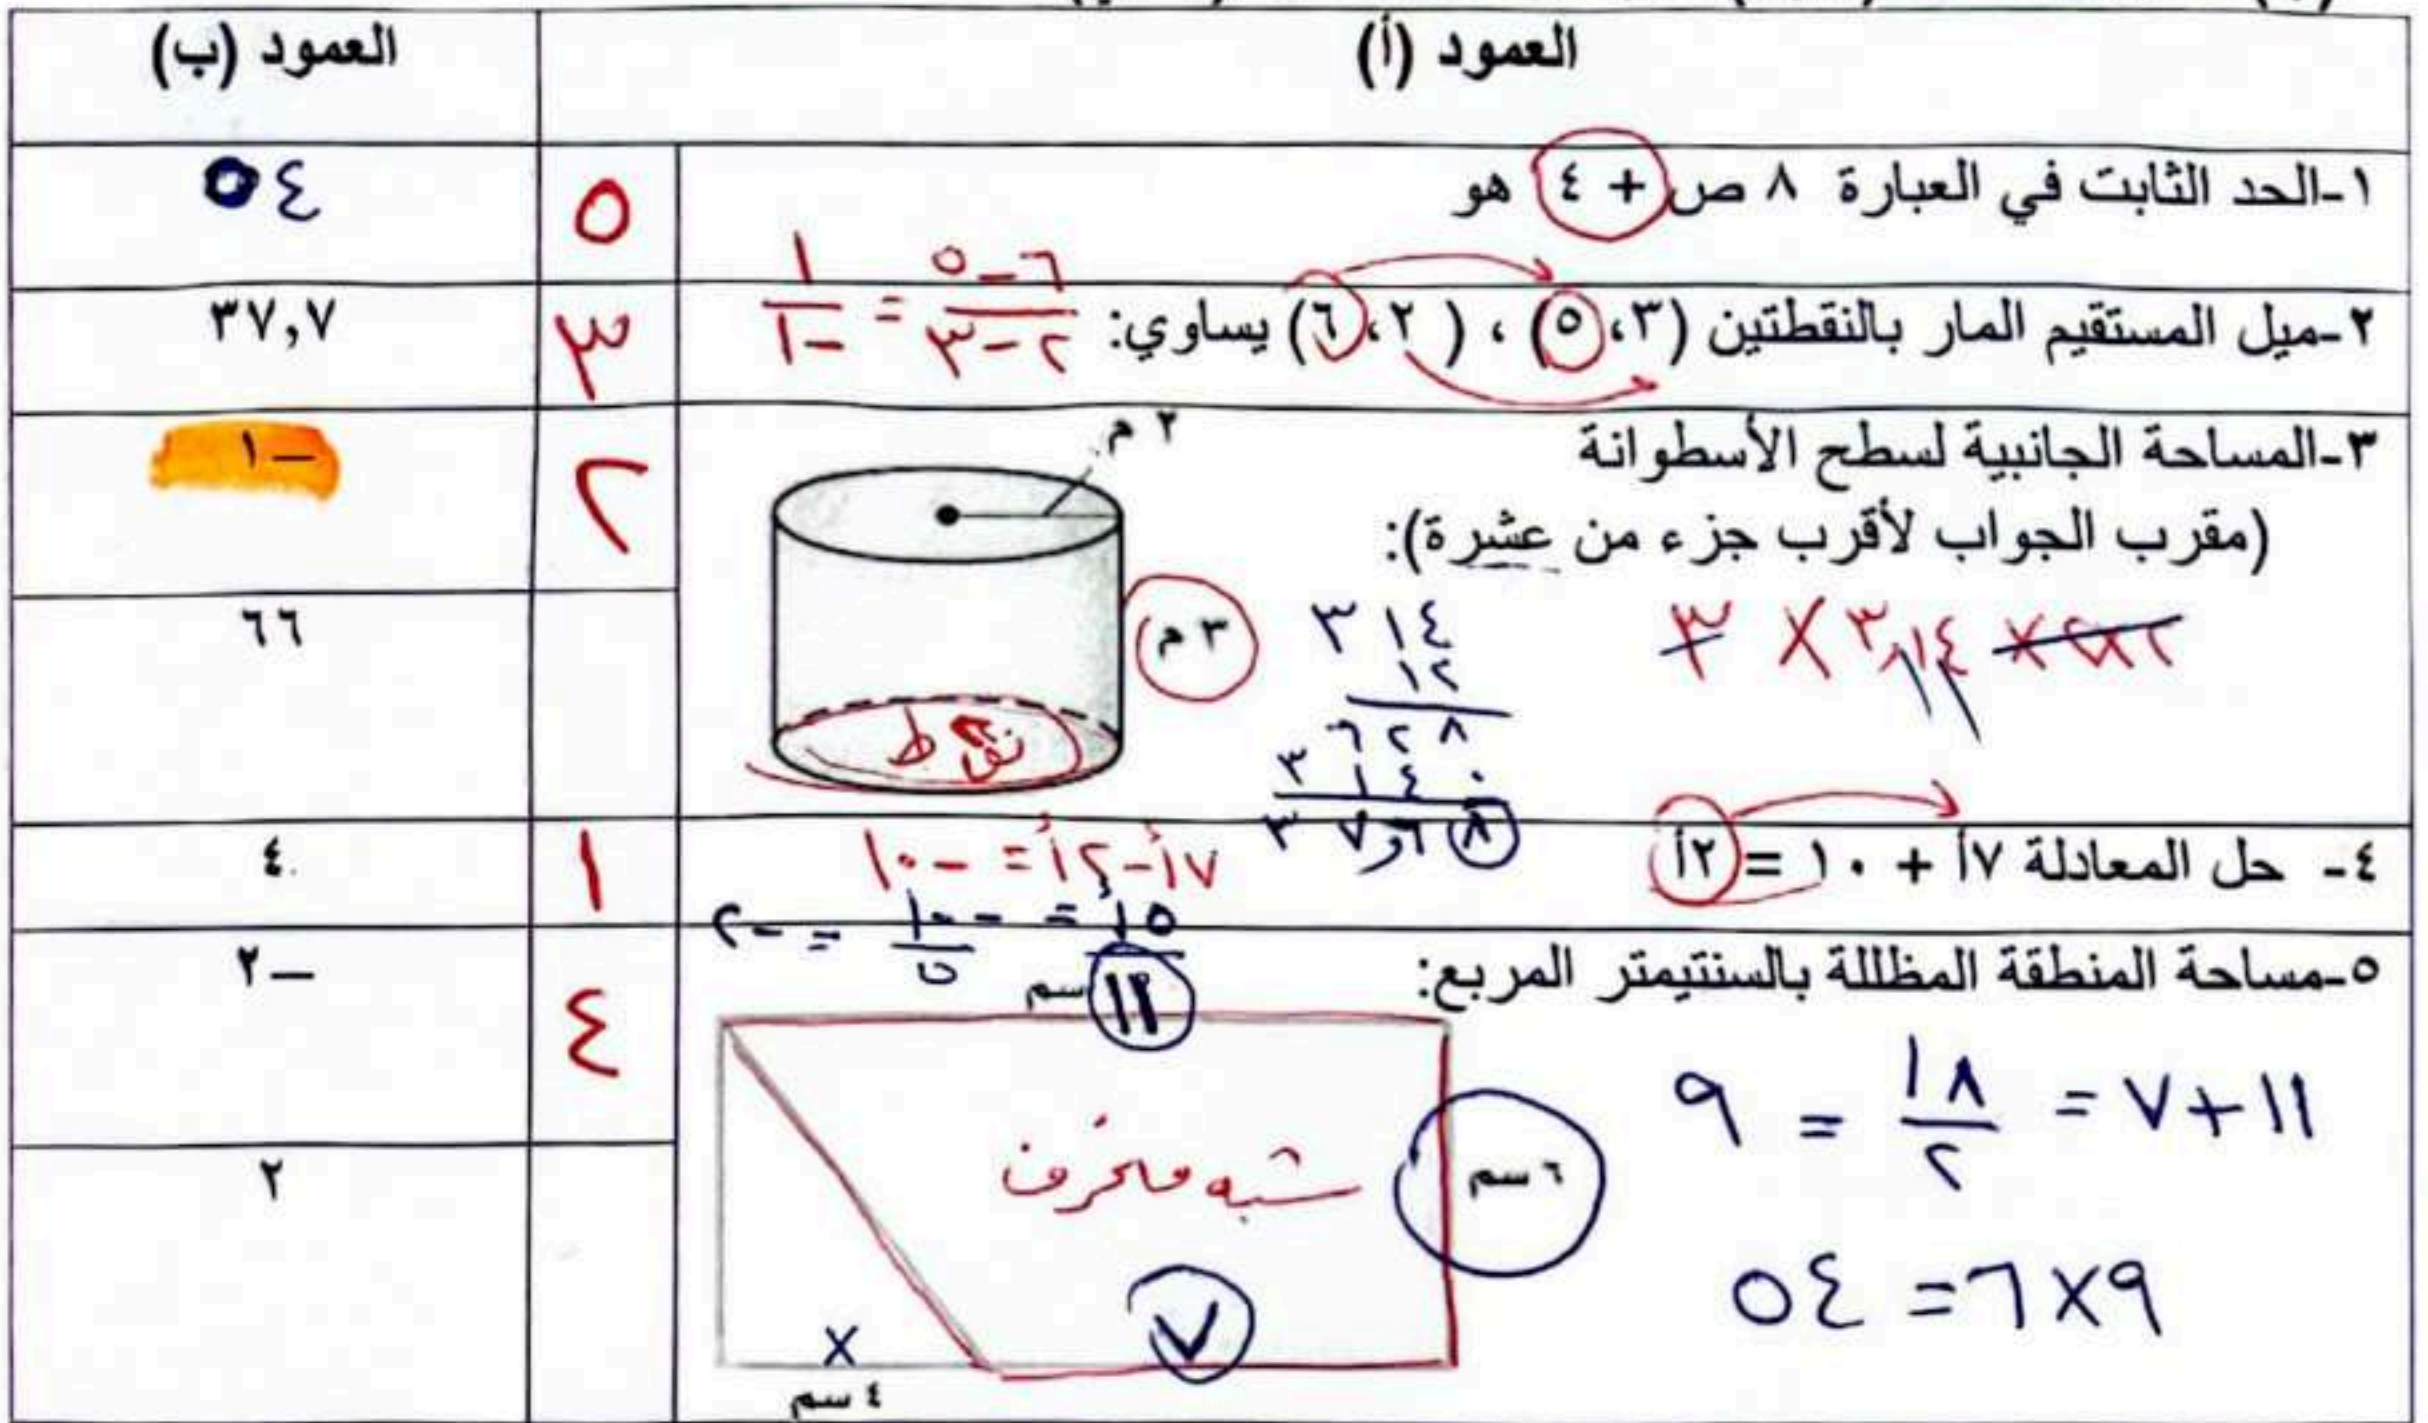 العمود (أ)
العمود (ب)
١-الحد الثابت في العبارة ٨ ص + ٤ هو
٥
٥٤
٢-ميل المستقيم المار بالنقطتين (٣،٥) ، (٢،٦) يساوي:
٦-٥
٢-٣
=
١
-١
٣
٣٧,٧
٣-المساحة الجانبية لسطح الأسطوانة
(مقرب الجواب لأقرب جزء من عشرة):
٢ م
٣ م
٢×٢×٣,١٤×٣
٣١٤
١٢
٦٢٨
٣١٤٠
٣٧,٦٨
نق٢ ط
٢
-١
٦٦
٤- حل المعادلة ٧أ + ١٠ = ٢أ
٧أ-٢أ=-١٠
٥أ = -١٠ = -٢
٥
١
٤
٥-مساحة المنطقة المظللة بالسنتيمتر المربع:
١١ سم
١١+٧ = ١٨ = ٩
٢
شبه منحرف
٦ سم
٩×٦= ٥٤
٧
x
٤ سم
٤
-٢
٢